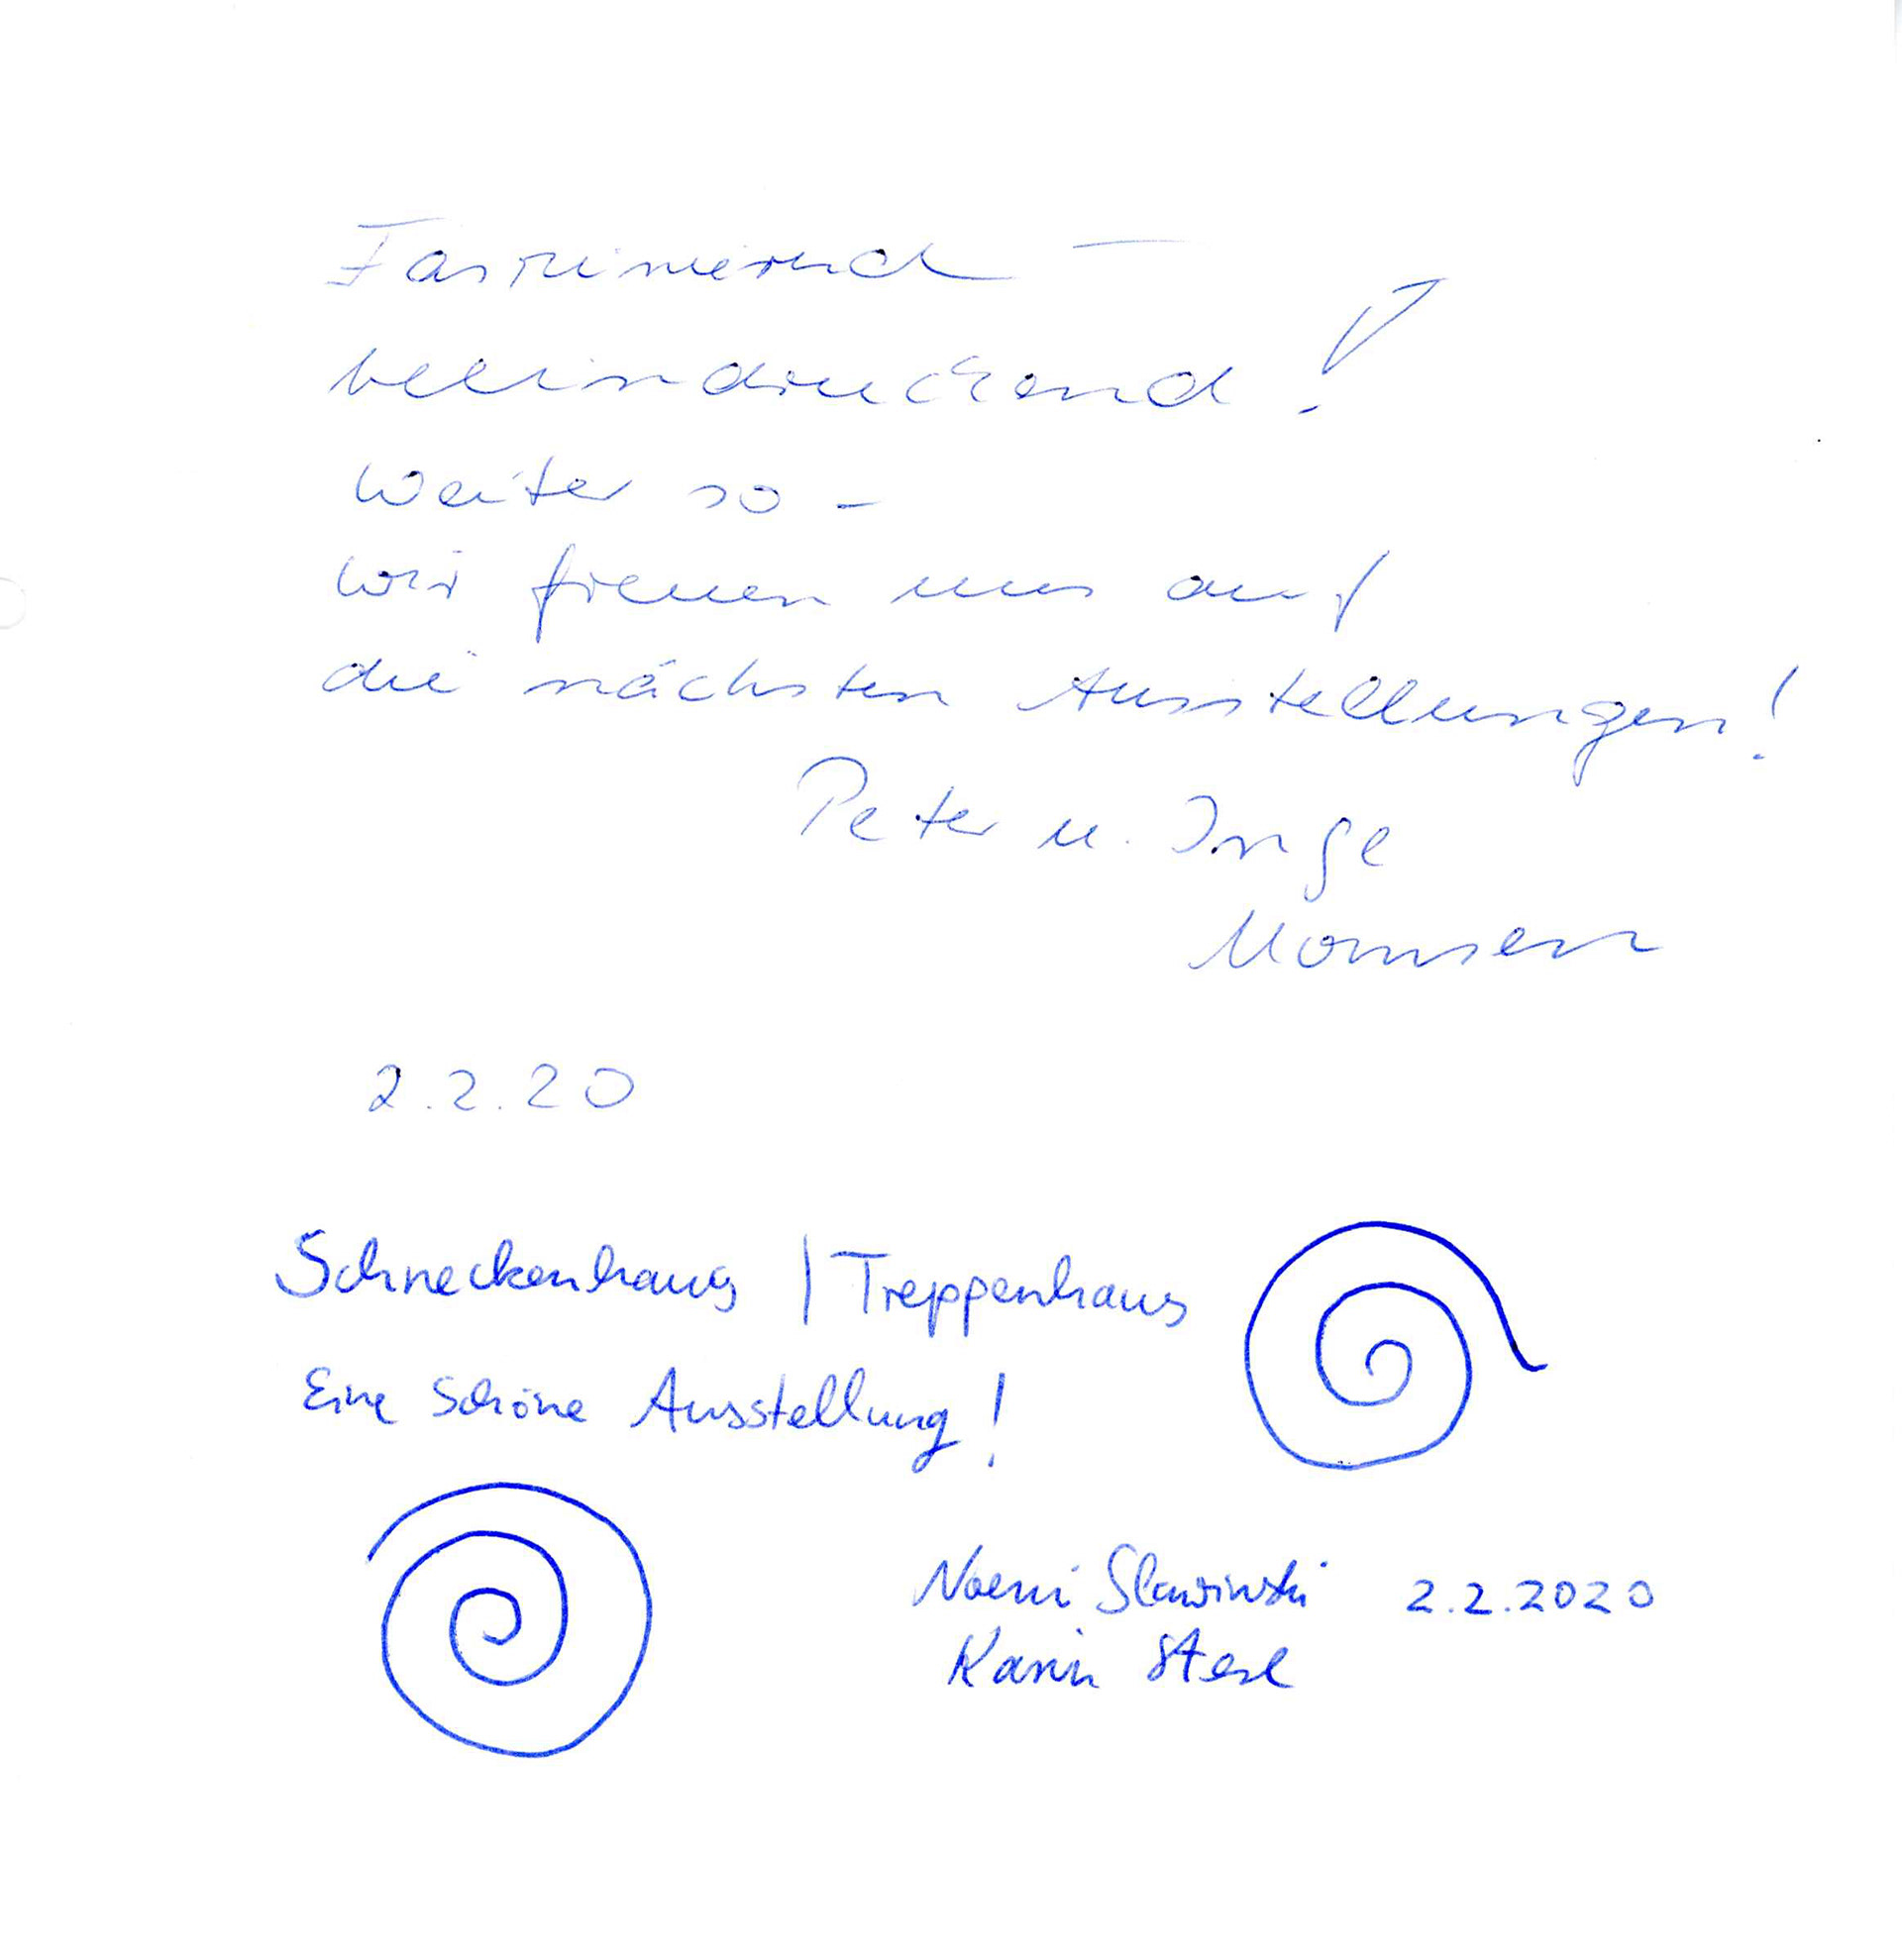 Faszinierend –
beeindruckend!
Weiter so –
wir freuen uns auf
die nächsten Ausstellungen!
Peter u. Inge
Momsen
2.2.20
Schneckenhaus | Treppenhaus
Eine schöne Ausstellung!
Noemi Slawinski 2.2.2020
Karin